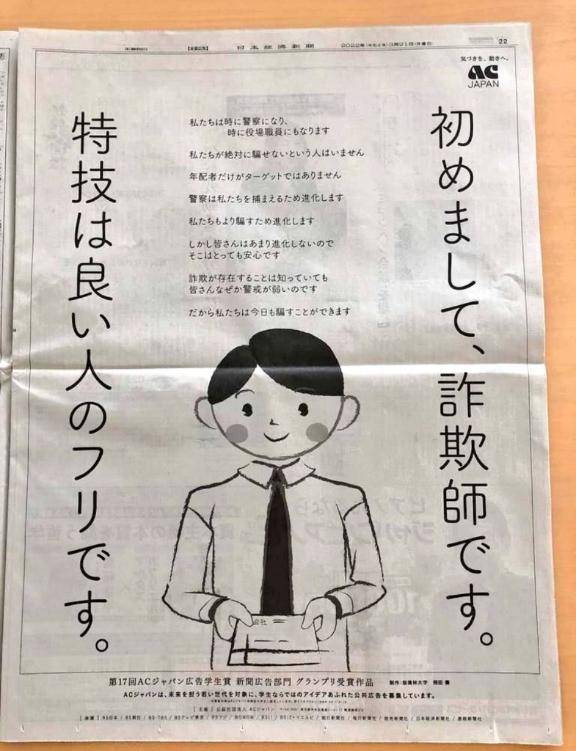 日本経済新聞
2022年(令和4年)3月21日(月曜日)
22
気づきを、動きへ。
AC
JAPAN
初めまして、詐欺師です。
特技は良い人のフリです。
私たちは時に警察になり、
時に役場職員にもなります
私たちが絶対に騙せないという人はいません
年配者だけがターゲットではありません
警察は私たちを捕まえるため進化します
私たちもより騙すため進化します
しかし皆さんはあまり進化しないので
そこはとっても安心です
詐欺が存在することは知っていても
皆さんなぜか警戒が弱いのです
だから私たちは今日も騙すことができます
会社
第17回ACジャパン広告学生賞 新聞広告部門 グランプリ受賞作品
ACジャパンは、未来を担う若い世代を対象に、学生ならではのアイデアあふれた公共広告を募集しています。